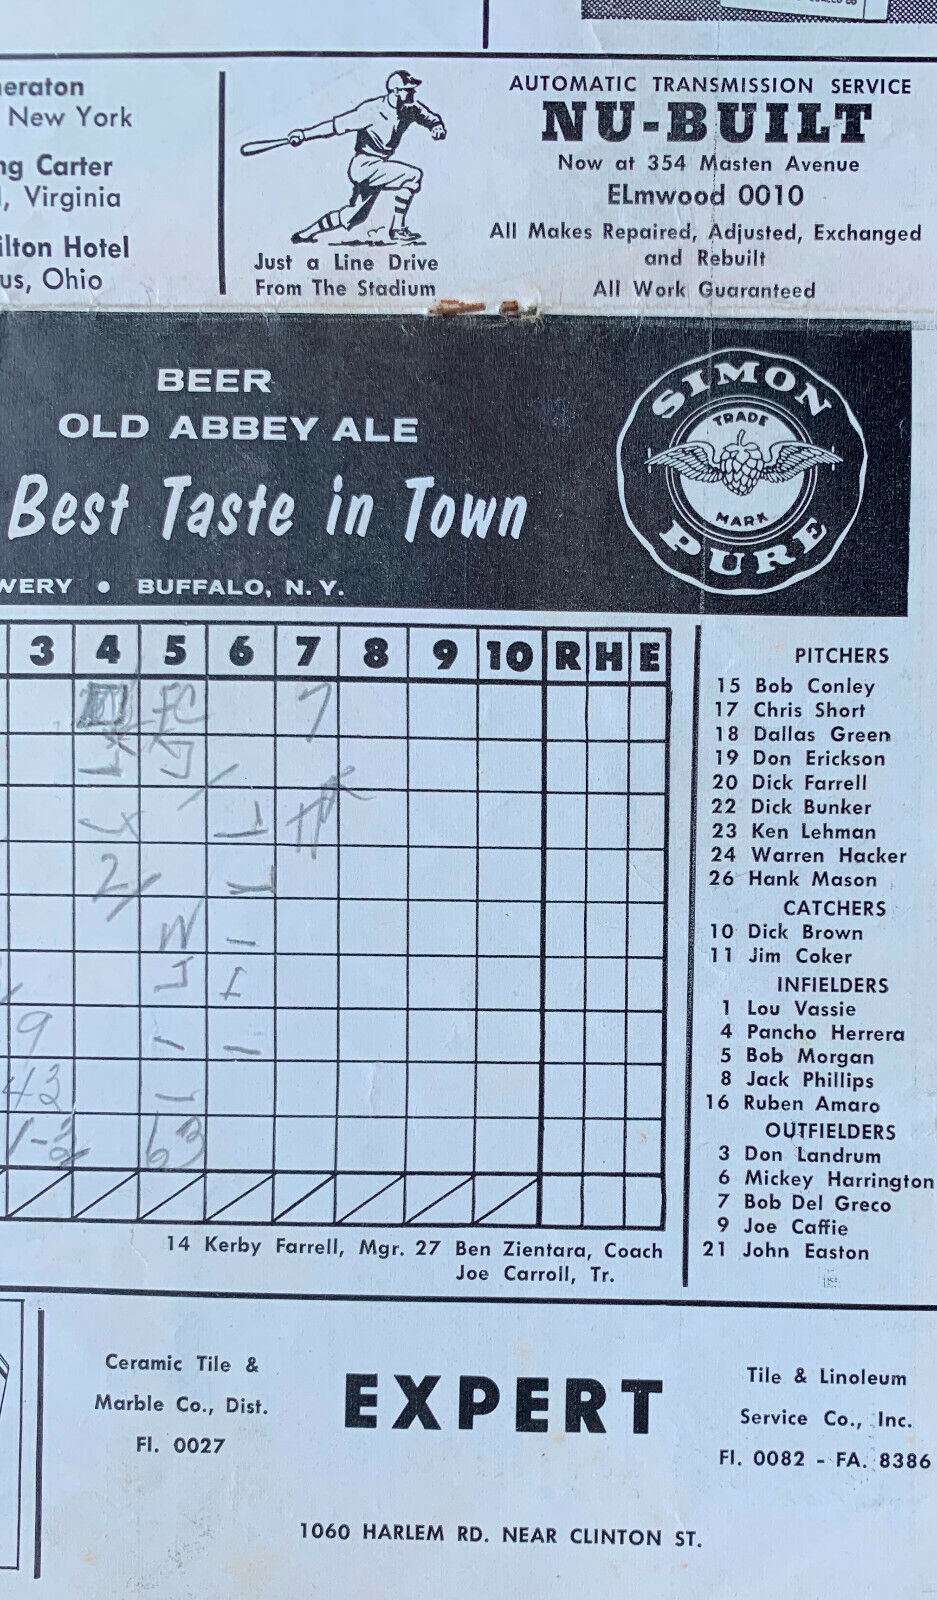 eraton
New York
ng Carter
, Virginia
ilton Hotel
us, Ohio
Just a Line Drive
From The Stadium
AUTOMATIC TRANSMISSION SERVICE
NU-BUILT
Now at 354 Masten Avenue
ELmwood 0010
All Makes Repaired, Adjusted, Exchanged
and Rebuilt
All Work Guaranteed
BEER
OLD ABBEY ALE
Best Taste in Town
WERY • BUFFALO, N. Y.
SIMON
TRADE
MARK
PURE
3 4 5 6 7 8 9 10 R H E
FC 7
2
W
9
43
1-3 63
14 Kerby Farrell, Mgr. 27 Ben Zientara, Coach
Joe Carroll, Tr.
PITCHERS
15 Bob Conley
17 Chris Short
18 Dallas Green
19 Don Erickson
20 Dick Farrell
22 Dick Bunker
23 Ken Lehman
24 Warren Hacker
26 Hank Mason
CATCHERS
10 Dick Brown
11 Jim Coker
INFIELDERS
1 Lou Vassie
4 Pancho Herrera
5 Bob Morgan
8 Jack Phillips
16 Ruben Amaro
OUTFIELDERS
3 Don Landrum
6 Mickey Harrington
7 Bob Del Greco
9 Joe Caffie
21 John Easton
Ceramic Tile &
Marble Co., Dist.
Fl. 0027
EXPERT
Tile & Linoleum
Service Co., Inc.
Fl. 0082 - FA. 8386
1060 HARLEM RD. NEAR CLINTON ST.